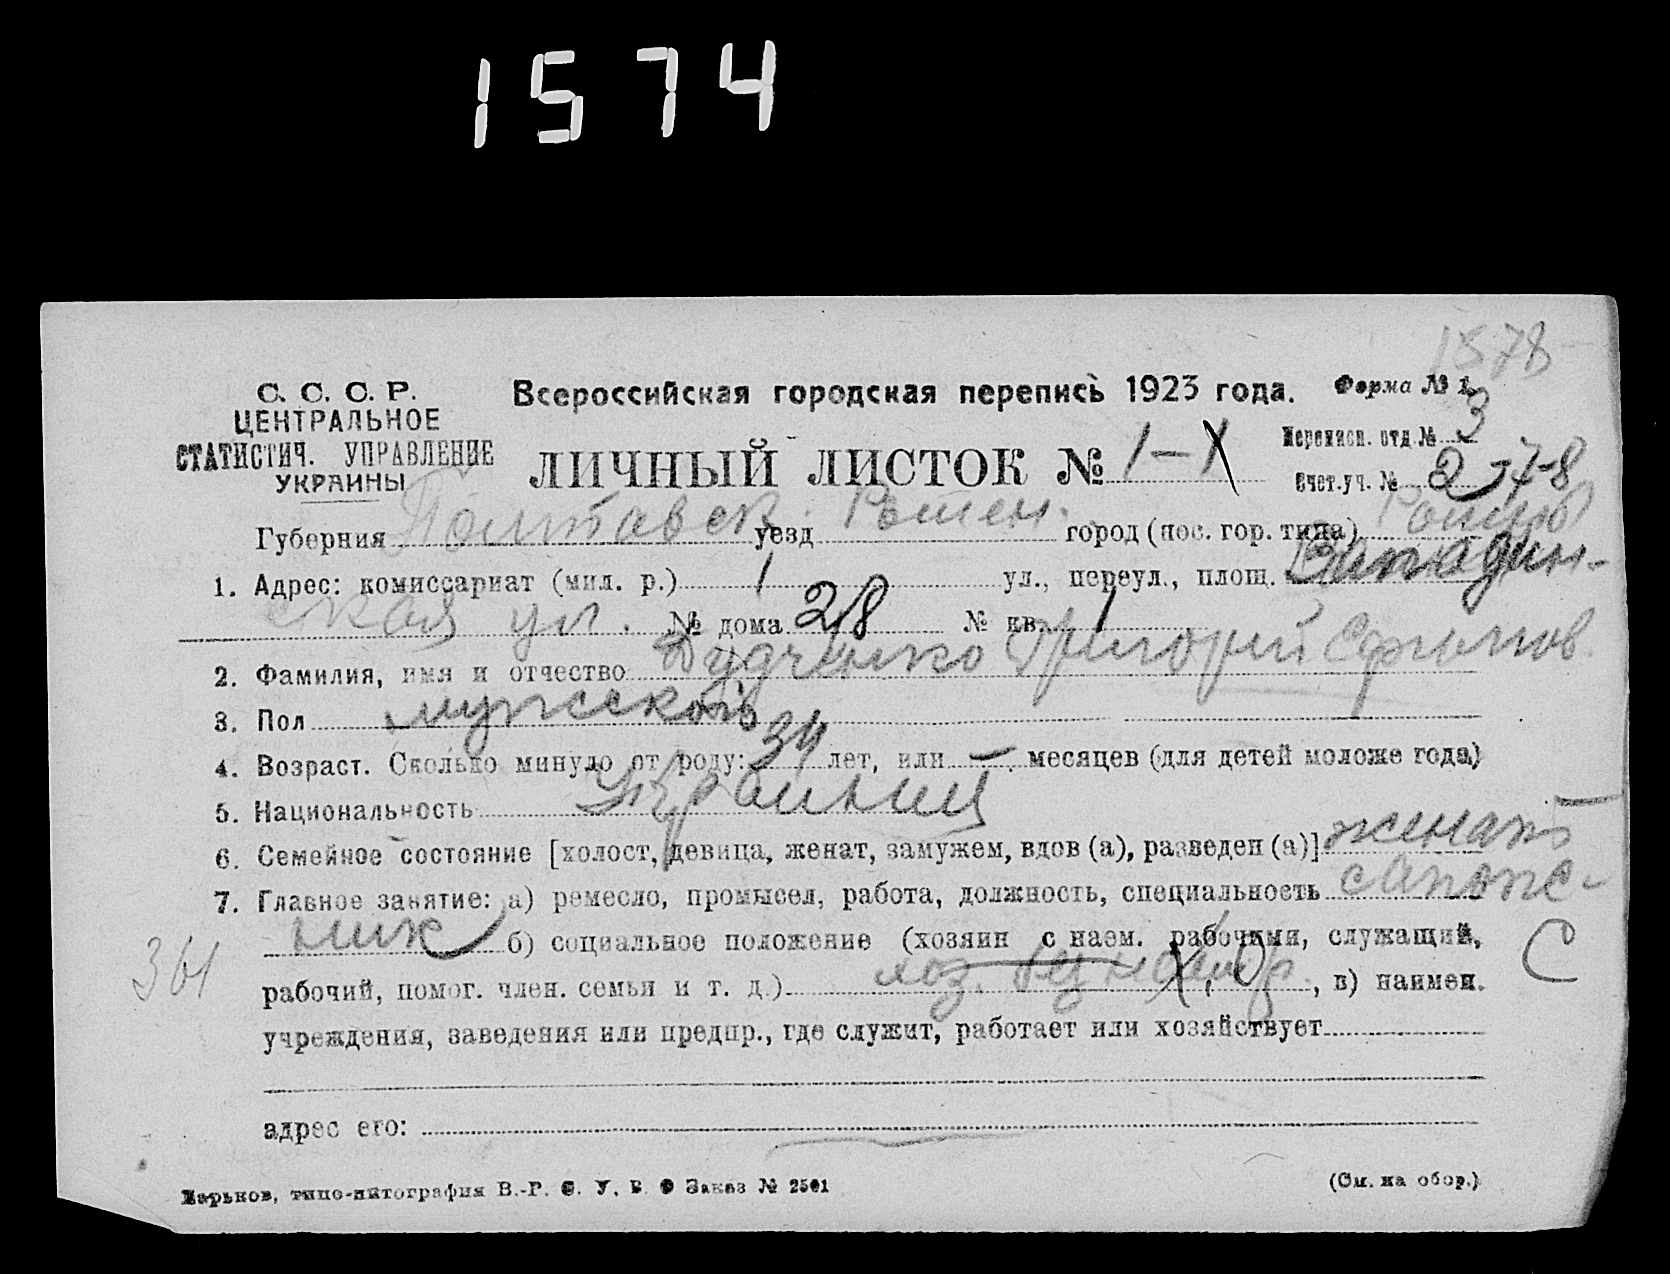 1574
1578
С. С. С. Р.
ЦЕНТРАЛЬНОЕ
СТАТИСТИЧ. УПРАВЛЕНИЕ
УКРАИНЫ
Всероссийская городская перепись 1923 года.
Форма № 1.
ЛИЧНЫЙ ЛИСТОК № 1-1
Переписн. отд. № 3
Счет. уч. № 2-7-8
Губерния Полтавск. уезд Ромен. город (пос. гор. типа)
1. Адрес: комиссариат (мил. р.) 1 ул., переул., площ.
ская ул. № дома 28 № кв. 1
2. Фамилия, имя и отчество Дудченко Григорий Ефимов.
3. Пол мужской
4. Возраст. Сколько минуло от роду: 34 лет, или — месяцев (для детей моложе года)
5. Национальность Украинец
6. Семейное состояние [холост, девица, женат, замужем, вдов (а), разведен (а)] женат
7. Главное занятие: а) ремесло, промысел, работа, должность, специальность сапож-
ник б) социальное положение (хозяин с наем. рабочими, служащий,
361
С
рабочий, помог. член. семьи и т. д.) хоз. без , в) наимен.
учреждения, заведения или предпр., где служит, работает или хозяйствует
адрес его:
Харьков, типо-литография В.-Р. С. У. В. О Заказ № 2501
(См. на обор.)